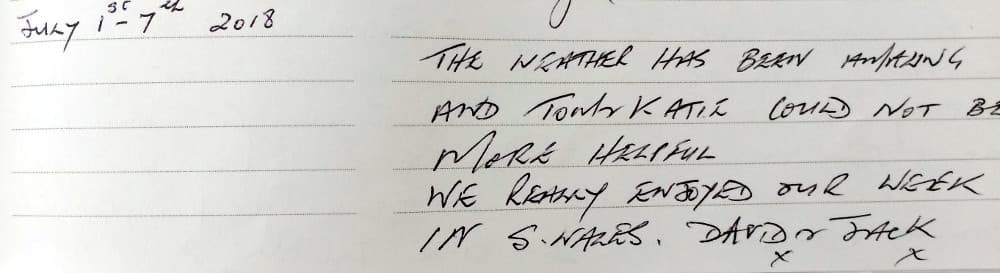 July 1st-7th 2018
THE WEATHER HAS BEEN AMAZING
AND TOM & KATIE COULD NOT BE
MORE HELPFUL
WE REALLY ENJOYED OUR WEEK
IN S. WALES. DAVID & JACK
x x